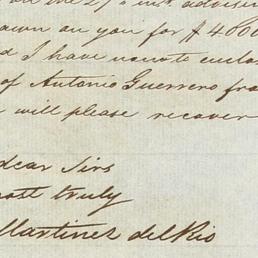 on the 27th inst. advisin
awn on you for $ 4000
d I have now to enclos
of Antonio Guerrero fra
u will please recover
dear Sirs
ost truly
Martinez del Rio